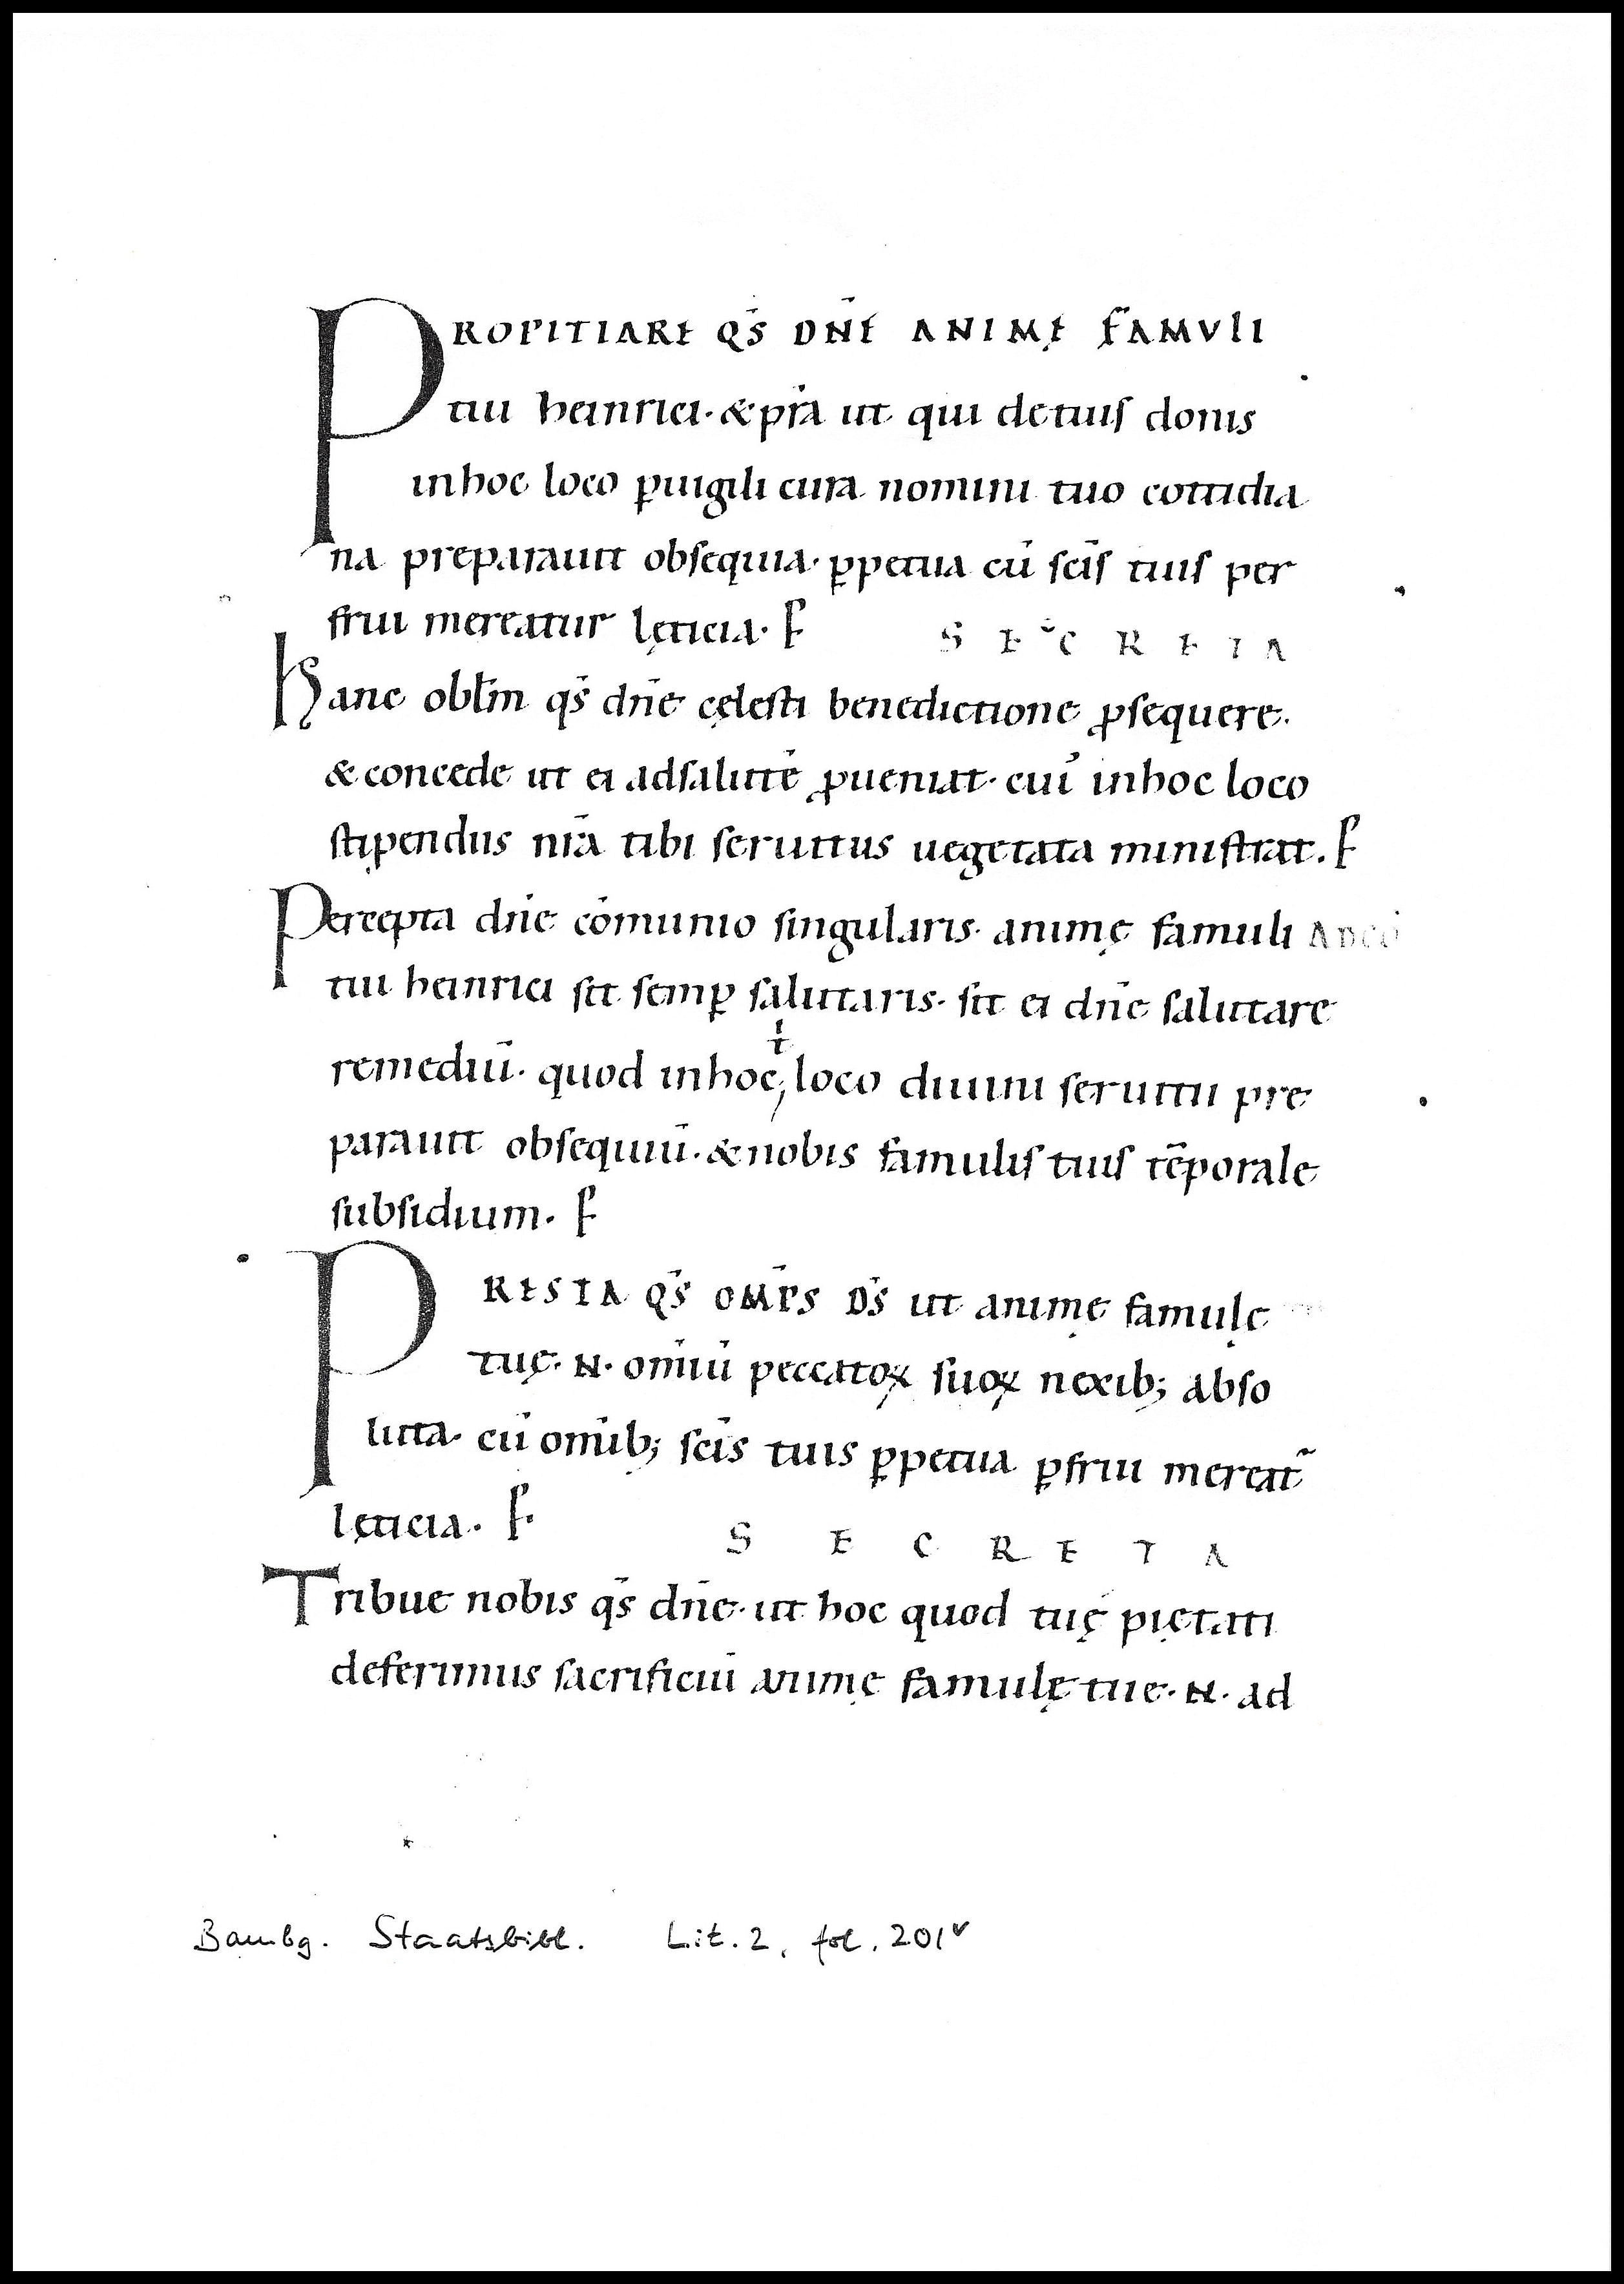 PROPITIARE QS̄ DN̄E ANIMĘ FAMVLI
tui heinrici · & pr̄a ut qui detuis donis
inhoc loco ꝑuigili cura nomini tuo cottidia
na preparauit obsequia · ꝑpetua cū sc̄is tuis per
frui mereatur lęticia · P SECRETA
Hanc obl̄m qs̄ dn̄e cęlesti benedictione ꝓsequere ·
& concede ut ei adsalutē ꝓueniat · cuī inhoc loco
stipendiis nr̄a tibi seruitus uegetata ministrat · P
Percepta dn̄e cōmunio singularis · animę famuli ADCŌ
tui heinrici sit semꝑ salutaris · sit ei dn̄e salutare
remediū · quod inhoc, ı̵t loco diuini seruitii pre
parauit obsequiū · & nobis famulis tuis tēporale
subsidium · P
PRESTA QS̄ OMP̄S DS̄ ut animę famulę
tuę · N · omīū peccatoꝝ suoꝝ nexib; abso
luta · cū omīb; sc̄is tuis ꝑpetua ꝑfrui mereat̄
lęticia · P · SECRETA
Tribue nobis qs̄ dn̄e · ut hoc quod tuę piętati
deferimus sacrificiū animę famulę tue · N · ad
Bambg. Staatsbibl. Lit. 2, fol. 201ᵛ